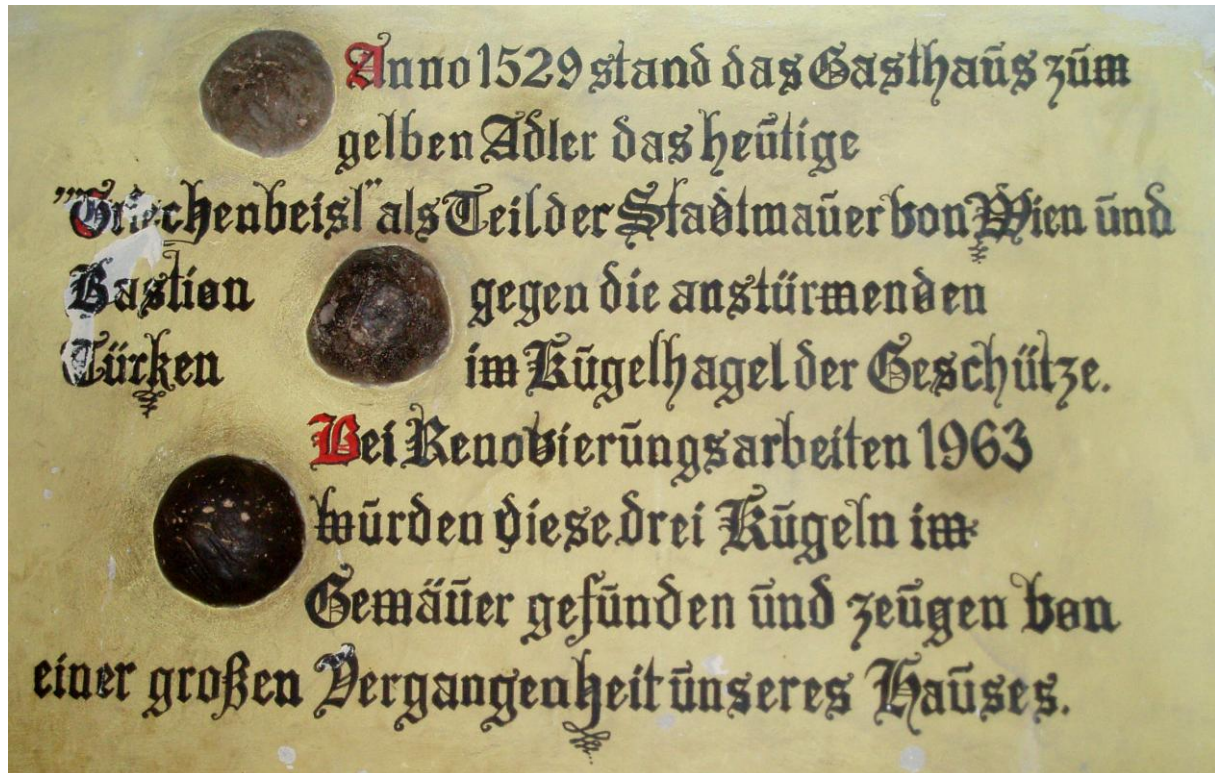 Anno 1529 stand das Gasthaus zum
gelben Adler das heutige
"Griechenbeisl" als Teil der Stadtmauer von Wien und
Bastion gegen die anstürmenden
Türken im Kugelhagel der Geschütze.
Bei Renovierungsarbeiten 1963
wurden diese drei Kugeln im
Gemäuer gefunden und zeugen von
einer großen Vergangenheit unseres Hauses.